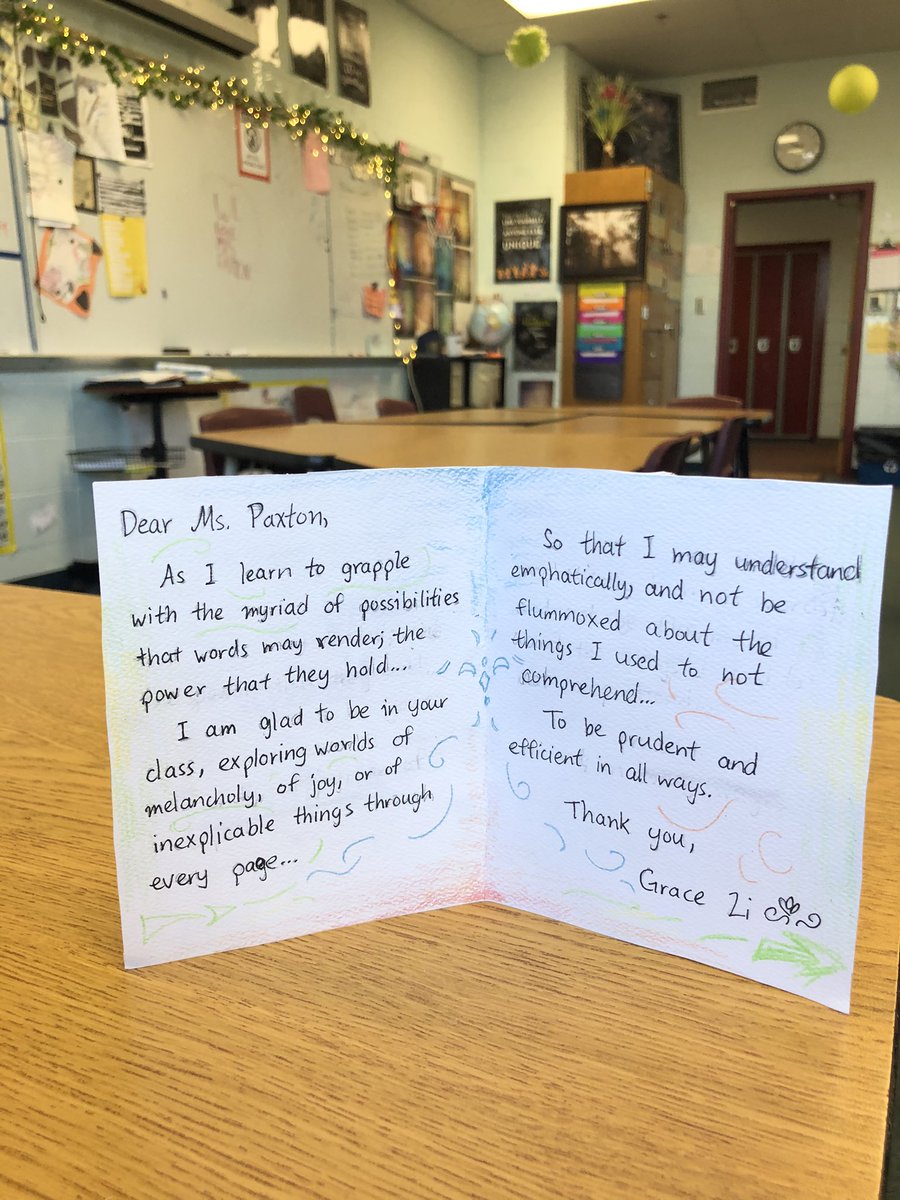 Dear Ms. Paxton,
As I learn to grapple
with the myriad of possibilities
that words may render; the
power that they hold...
I am glad to be in your
class, exploring worlds of
melancholy, of joy, or of
inexplicable things through
every page...
So that I may understand
emphatically, and not be
flummoxed about the
things I used to not
comprehend...
To be prudent and
efficient in all ways.
Thank you,
Grace Li
UNIQUE